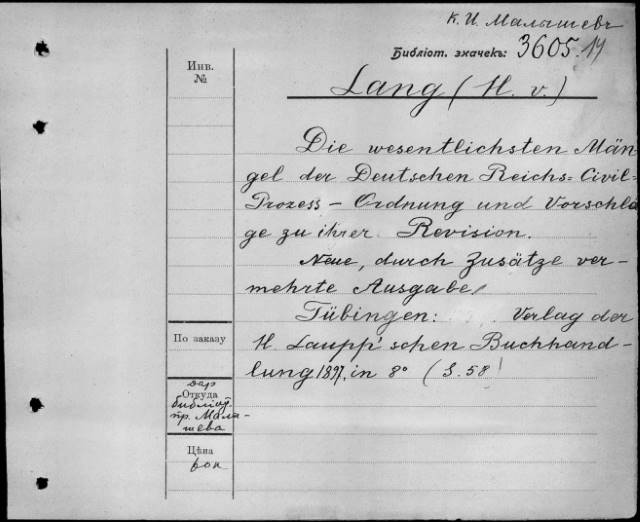 К. И. Малышевъ
Библіот. значекъ: 3605.17
Инв.
№
Lang (H. v.)
Die wesentlichsten Män-
gel der Deutschen Reichs=Civil=
Prozess - Ordnung und Vorschlä
ge zu ihrer Revision.
Neue, durch Zusätze ver-
mehrte Ausgabe/
Tübingen: Verlag der
H. Laupp'schen Buchhand-
lung 1897, in 8° (S. 58)
По заказу
дар
Откуда
библіот.
пр. Малы-
шева
Цѣна